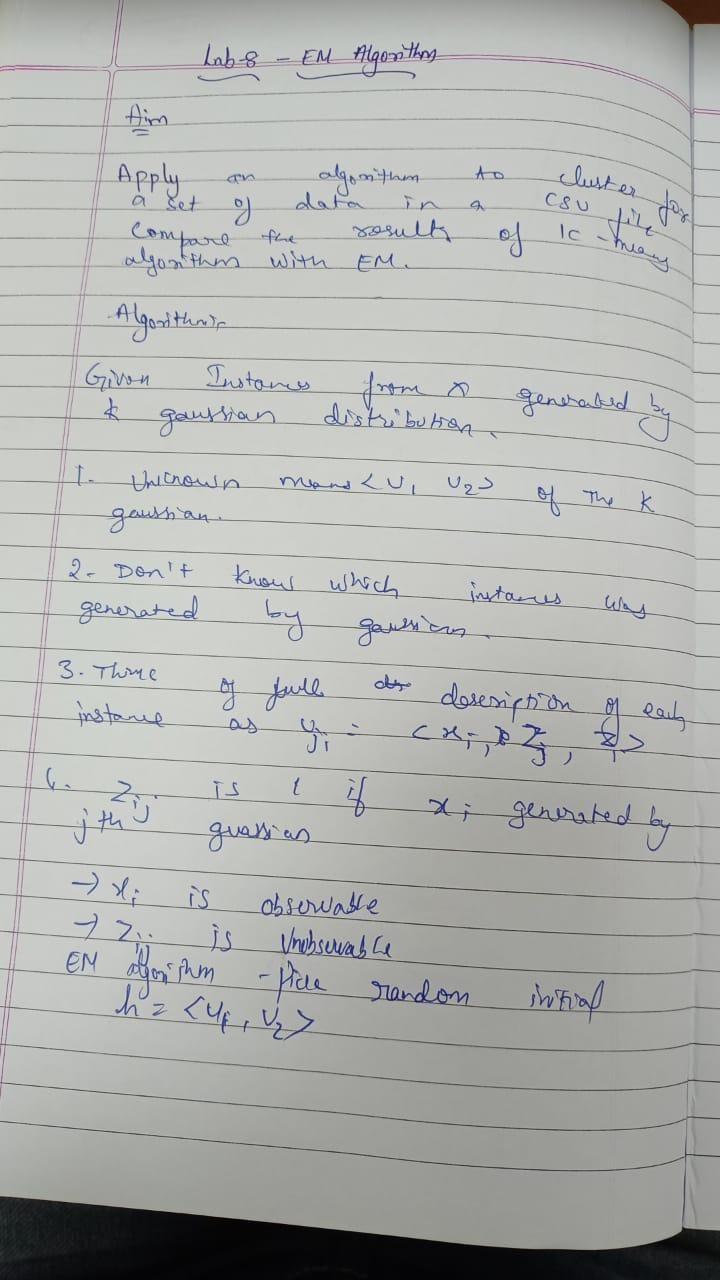 Lab-8 - EM Algorithm
Aim
Apply an algorithm to cluster for
a set of data in a CSV file
Compare the results of K-means
algorithms with EM.
Algorithm:-
Given Instances from x generated by
k gaussian distribution.
1. Unknown means <u1 u2> of the K
gaussian.
2- Don't know which instances was
generated by gaussian.
3. Think of full description of each
instance as yi = <xi, Zj, >
4. Zij is 1 if xi generated by
jth guassian
→ xi is observable
→ Zij is Unobservable
EM algorithm - pick random initial
h = <u1, u2>